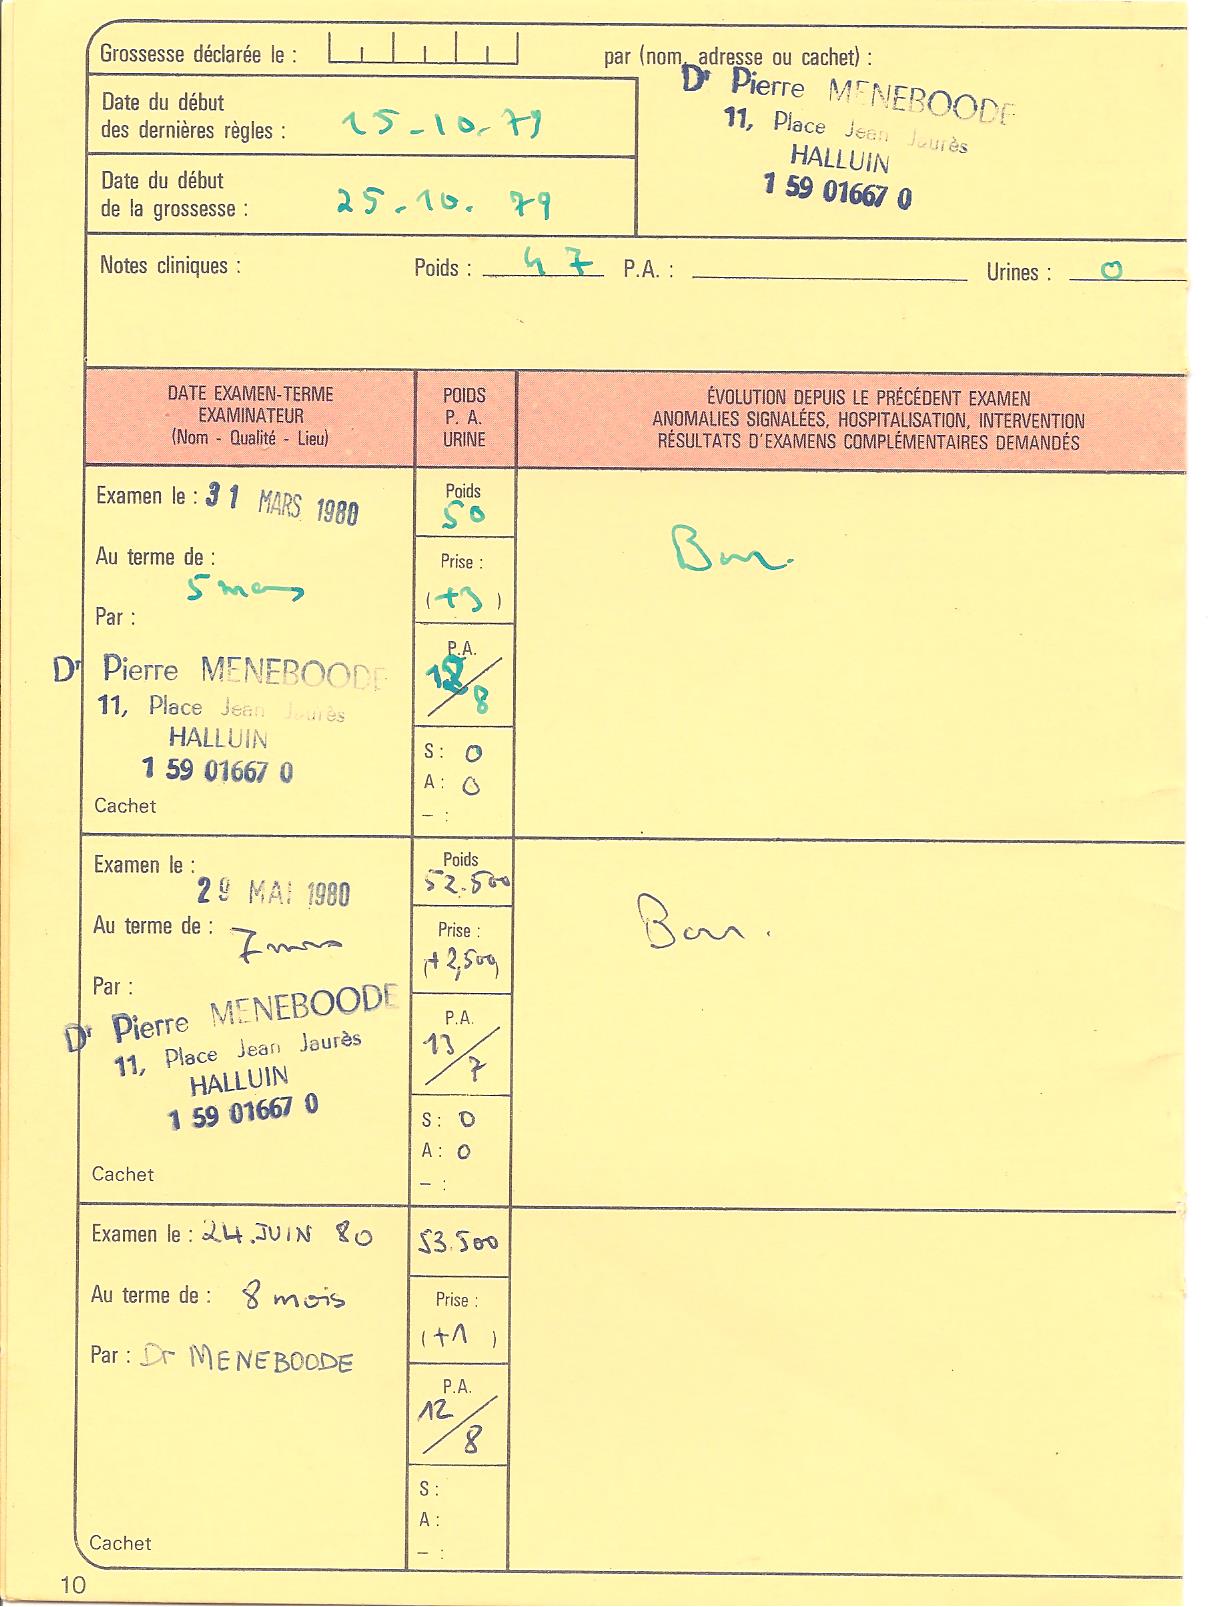 Grossesse déclarée le :
par (nom, adresse ou cachet) :
Dr Pierre MENEBOODE
11, Place Jean Jaurès
HALLUIN
1 59 01667 0
Date du début
des dernières règles : 15-10-79
Date du début
de la grossesse : 25-10.79
Notes cliniques : Poids : 47 P.A. : Urines : 0
DATE EXAMEN-TERME
EXAMINATEUR
(Nom - Qualité - Lieu)
POIDS
P. A.
URINE
ÉVOLUTION DEPUIS LE PRÉCÉDENT EXAMEN
ANOMALIES SIGNALÉES, HOSPITALISATION, INTERVENTION
RÉSULTATS D'EXAMENS COMPLÉMENTAIRES DEMANDÉS
Examen le : 31 MARS 1980
Au terme de :
5 mois
Par :
Dr Pierre MENEBOODE
11, Place Jean Jaurès
HALLUIN
1 59 01667 0
Cachet
Poids
50
Prise :
(+3)
P.A.
12/8
S : 0
A : 0
– :
Bon.
Examen le :
29 MAI 1980
Au terme de : 7 mois
Par :
Dr Pierre MENEBOODE
11, Place Jean Jaurès
HALLUIN
1 59 01667 0
Cachet
Poids
52.500
Prise :
(+2,500)
P.A.
13/7
S : 0
A : 0
– :
Bon.
Examen le : 24.JUIN 80
Au terme de : 8 mois
Par : Dr MENEBOODE
Cachet
53.500
Prise :
(+1)
P.A.
12/8
S :
A :
– :
10